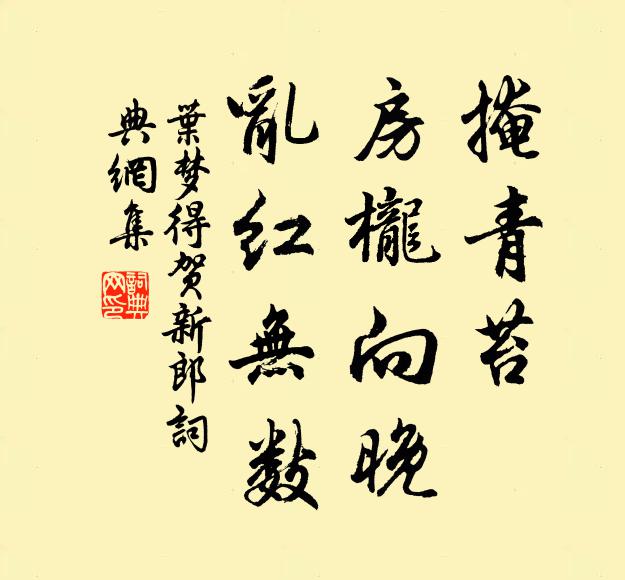 掩青苔
房櫳向晚
亂紅無数
葉梦得贺新郎詞
典網集
詞典网印